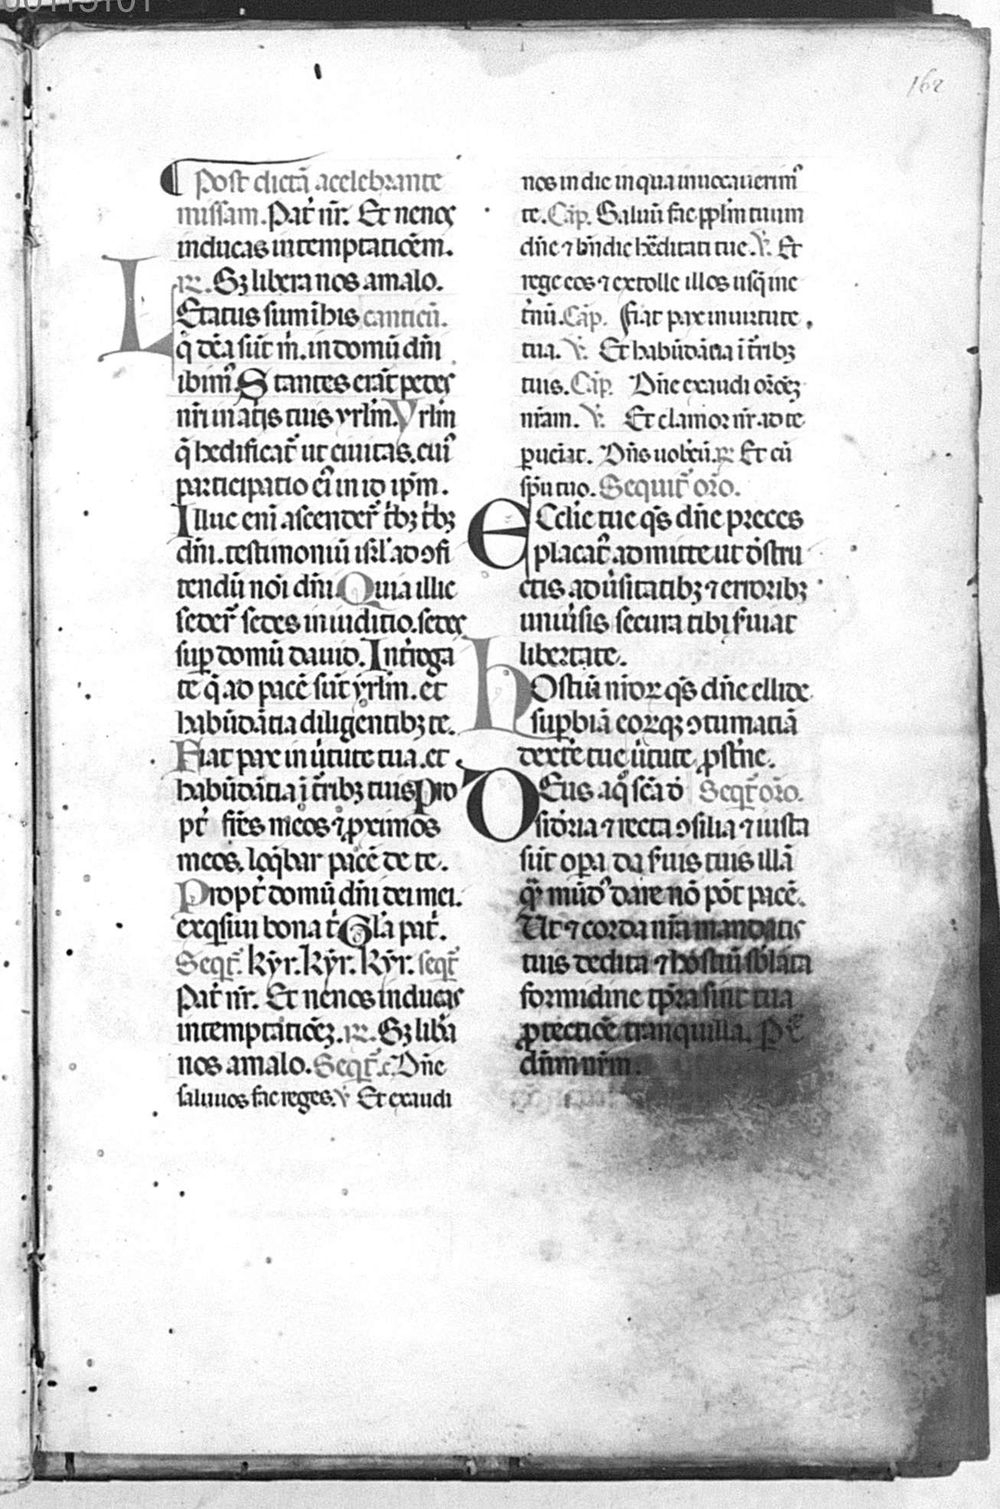 162
¶ Post dictā a celebrante
missam. Pat̄ nr̄. Et ne nos
inducas in temptatiōem.
R. Sꝫ libera nos a malo.
LEtatus sum ī his canticū.
q̄ dc̄a sūt m̄. in domū dn̄i
ibimꝰ. Stantes erāt pedes
nr̄i in atiis tuis yrl̄m. Yrl̄m
q̄ hedificat̄ ut ciuitas. cuiꝰ
participatio eiꝰ in id ip̄m.
Illuc eni ascender̄t t̄bꝫ t̄bꝫ
dn̄i. testimoniū isrl̄ ad ꝯfi
tendū noī dn̄i. Quia illic
seder̄t sedes in iuditio. sedes
suꝑ domū dauid. Int̄roga
te q̄ ad pacē sūt yrl̄m. et
habūdātia diligentibꝫ te.
Fiat pax in ūtute tua. et
habūdātia ī t̄ribꝫ tuis Pro
pt̄ fr̄es meos ⁊ ꝓximos
meos. loq̄bar pacē de te.
Propt̄ domū dn̄i dei mei.
exq̄siui bona t̄. Gl̄a pat̄.
Seqt̄. kyr. kyr. kyr. seqt̄
Pat̄ nr̄. Et ne nos inducas
in temptatiōeꝫ. R. Sꝫ lib̄a
nos a malo. Seqt̄. c. Dn̄e
saluuos fac reges. V Et exaudi
nos in die in qua inuocauerimꝰ
te. Cāp. Saluū fac ppl̄m tuum
dn̄e ⁊ bn̄dic hēditati tue. V. Et
rege eos ⁊ extolle illos usq̄ in e
t̄nū. Cāp. Fiat pax in uirtute
tua. V. Et habūdātia ī t̄ribꝫ
tuis. Cāp. Dn̄e exaudi or̄oeꝫ
mām. V. Et clamor mr̄. ad te
ꝑueiat. Dn̄s uobcū. R Et cū
sp̄u tuo. Sequit̄ or̄o.
ECcl̄ie tue q̄s dn̄e preces
placat̄ admitte ut dēstru
ctis adūsitatibꝫ ⁊ erroribꝫ
unuīsis secura tibi s̄uiat
libertate.
hOstiū nr̄oꝝ q̄s dn̄e ellide
suꝑbiā eorqꝫ ꝯtumatiā
dext̄e tue ūtute ꝓst̄ne.
DEus a q̊ sc̄a d̄ Seqt̄ or̄o.
sidēria ⁊ recta ꝯsilia ⁊ iusta
sūt oꝑa da s̄uis tuis illā
q̄ꝫ mūdꝰ dare nō pōt pacē.
Ut ⁊ corda nr̄a mandatis
tuis dedita ⁊ hostiū sb̄lata
formidine tꝑa sint tua
ꝓtectiōe tranquilla. P
dn̄m nr̄m.